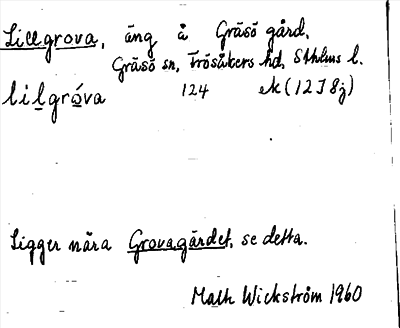 Lillgrova, äng å Gräsö gård,
Gräsö sn, Frösåkers hd, Sthlms l.
lilgróva 124 ek (12J8j)
Ligger nära Grovagärdet, se detta.
Math Wickström 1960